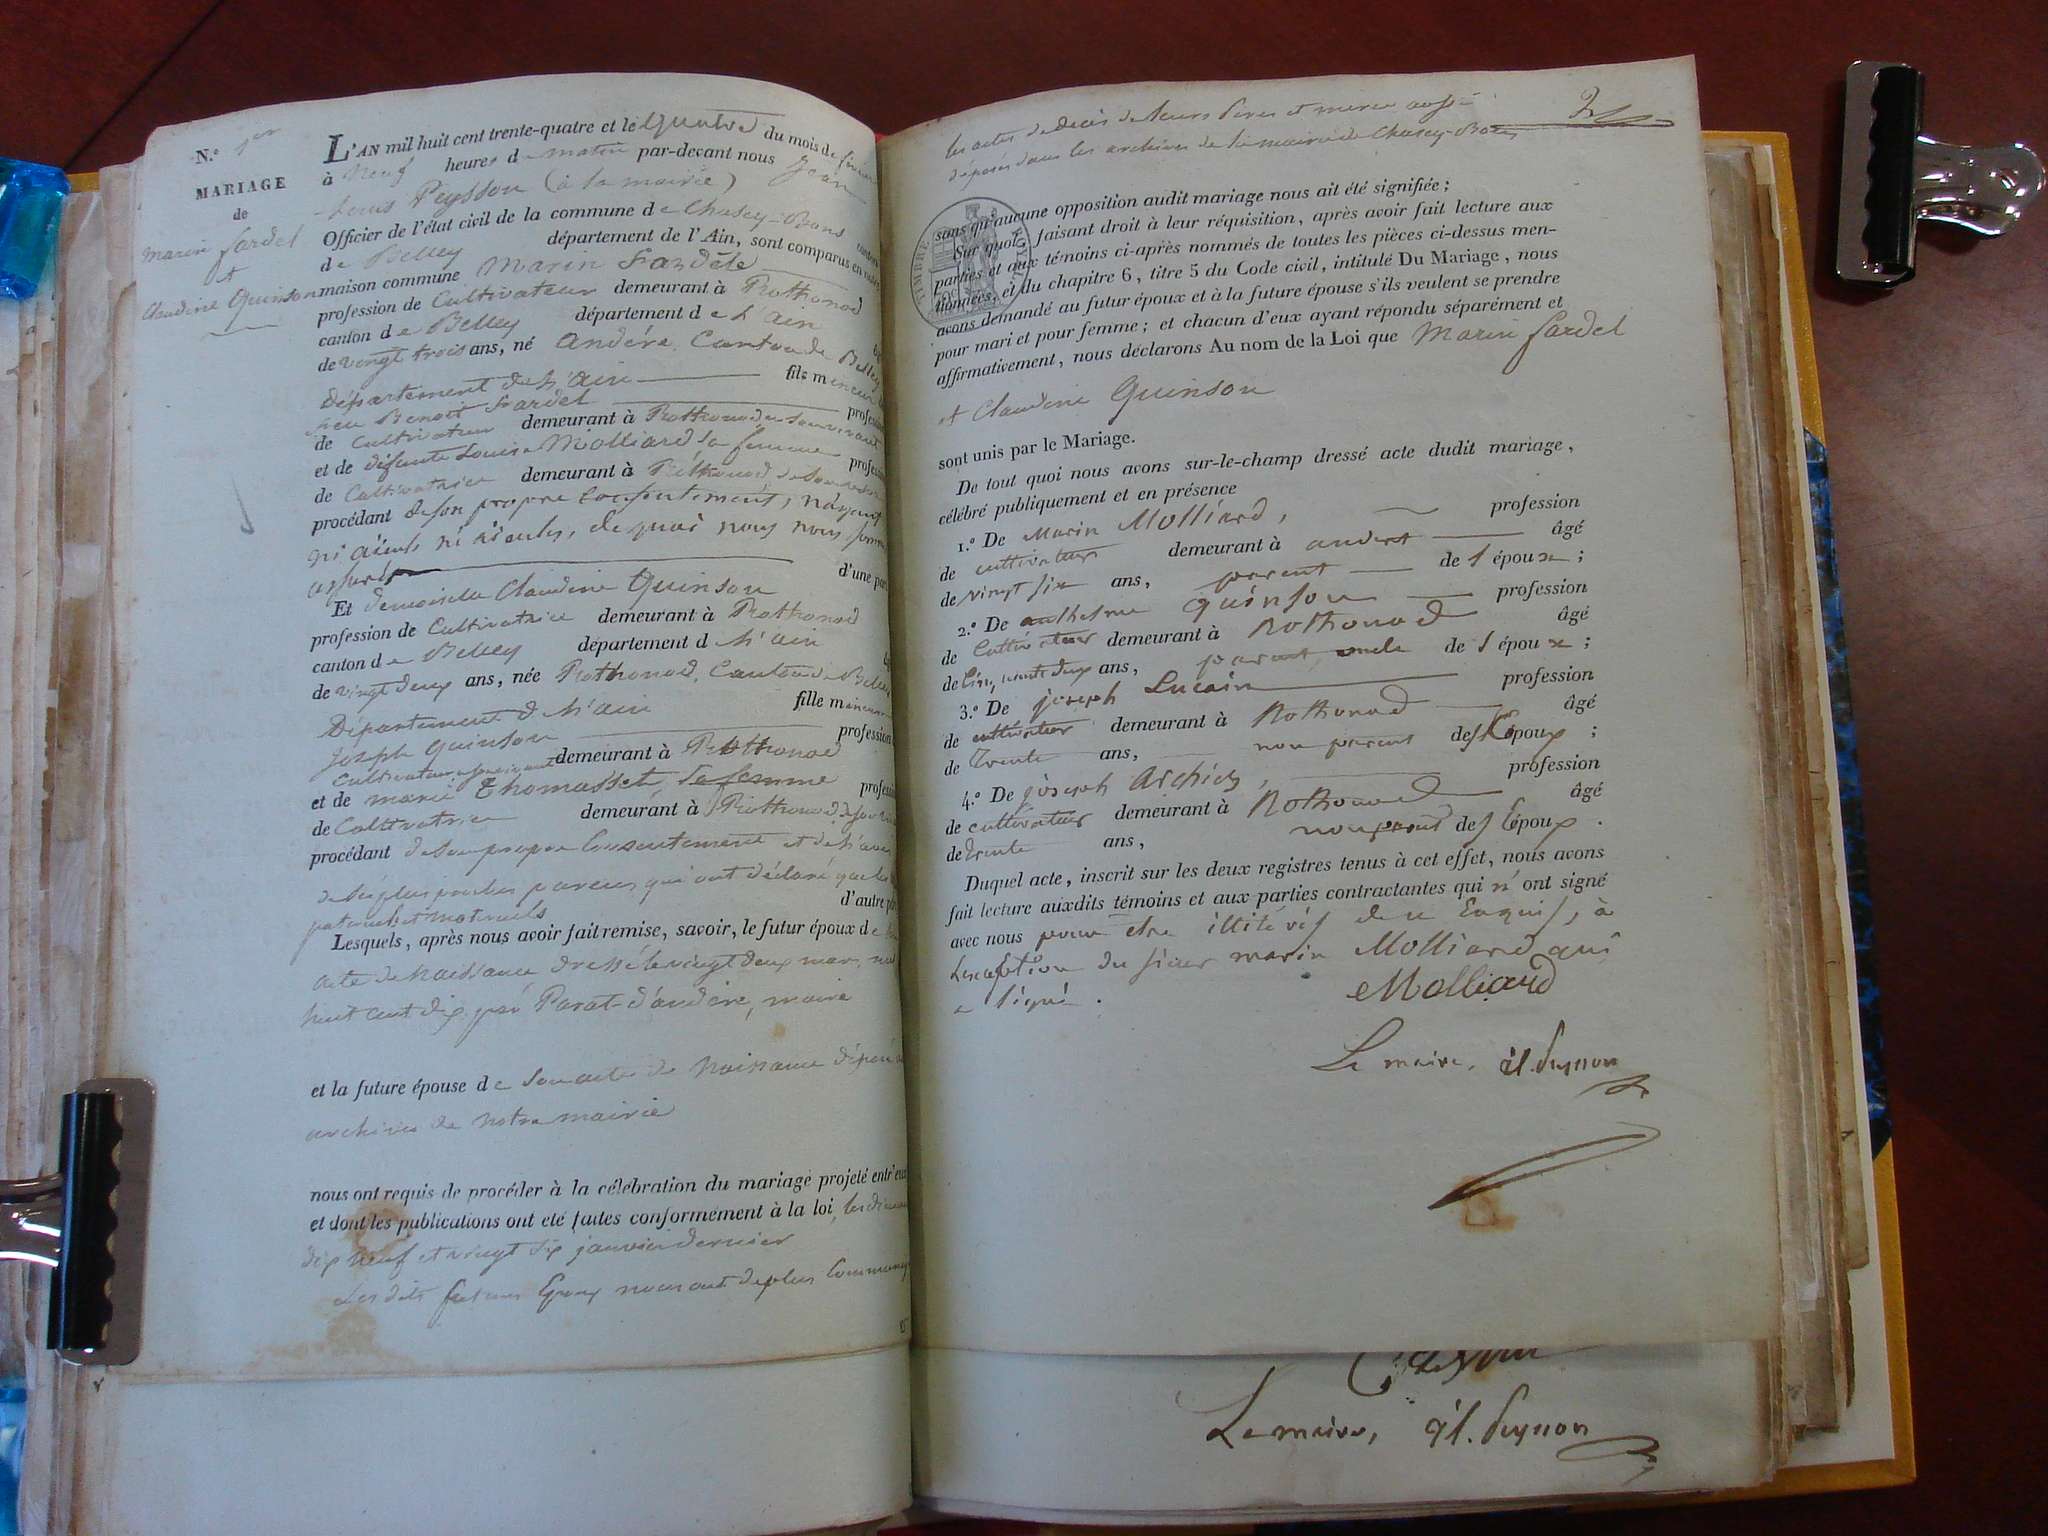 N.º 1er
MARIAGE
de
Marin fardel
et
Claudine Quinson
L'AN mil huit cent trente-quatre et le Quatre du mois de
à Neuf heures de matin par-devant nous Jean
Louis Peysson (à la mairie)
Officier de l'état civil de la commune de Chasey-Bons canton
de Belley département de l'Ain, sont comparus en notre
maison commune Marin Fardele
profession de Cultivateur demeurant à Rothonod
canton de Belley département de L'ain
de vingt trois ans, né Andére, Canton de Belley
Département de L'ain fils mineur
feu Benoit Fardel profession
de Cultivateur demeurant à Rothonod de son vivant
et de défunte Louise Molliard sa femme profession
de Cultivatrice demeurant à Rothonod de son
procédant de son propre Consentement, n'ayant
ni aïeuls, ni aïeules, de quoi nous nous sommes
assurés d'une part
Et demoiselle Claudine Quinson
profession de Cultivatrice demeurant à Rothonod
canton de Belley département d L'ain
de vingt deux ans, née Rothonod, Canton de Belley
Département d L'ain fille mineure
Joseph Quinson profession
cultivateur demeurant à Rothonod
et de marie Thomasset, sa femme profession
de Cultivatrice demeurant à Rothonod de son
procédant de son propre Consentement et de L'aveu
de ses plus proches parens qui ont déclaré que les
paternels et maternels d'autre part
Lesquels, après nous avoir fait remise, savoir, le futur époux de son
acte de Naissance dressé le vingt deux mars mil
huit cent dix par Parat d'andére, maire
et la future épouse de son acte de Naissance déposé
archives de notre mairie
nous ont requis de procéder à la célébration du mariage projeté entr'eux
et dont les publications ont été faites conformément à la loi, les dimanches
dix Neuf et vingt six janvier dernier
Les dits futurs Epoux nous ont de plus Communiqué
les actes de decès de leurs Peres et meres aussi
déposés dans les archives de la mairie de Chasey-Bons
2
TIMBRE ROYAL
sans qu'aucune opposition audit mariage nous ait été signifiée;
Sur quoi, faisant droit à leur réquisition, après avoir fait lecture aux
parties et aux témoins ci-après nommés de toutes les pièces ci-dessus men-
tionnées, et du chapitre 6, titre 5 du Code civil, intitulé Du Mariage, nous
avons demandé au futur époux et à la future épouse s'ils veulent se prendre
pour mari et pour femme; et chacun d'eux ayant répondu séparément et
affirmativement, nous déclarons Au nom de la Loi que Marin fardel
et Claudine Quinson
sont unis par le Mariage.
De tout quoi nous avons sur-le-champ dressé acte dudit mariage,
célébré publiquement et en présence
1.º De Marin Molliard, profession
de cultivateur demeurant à andert âgé
de vingt six ans, parent de l'époux;
2.º De anthelme Quinson profession
de Cultivateur demeurant à Rothonod âgé
de Cinquante deux ans, parent, oncle de l'époux;
3.º De joseph Lucain profession
de cultivateur demeurant à Rothonod âgé
de Trente ans, non parent des Epoux;
4.º De joseph profession
de cultivateur demeurant à Rothonod âgé
de trente ans, non parent des Epoux.
Duquel acte, inscrit sur les deux registres tenus à cet effet, nous avons
fait lecture auxdits témoins et aux parties contractantes qui n'ont signé
avec nous pour etre illitérés de ce Enquis, à
Lexception du sieur marin Molliard qui
a signé.
Molliard
Le maire, Peysson
Le maire, Peysson